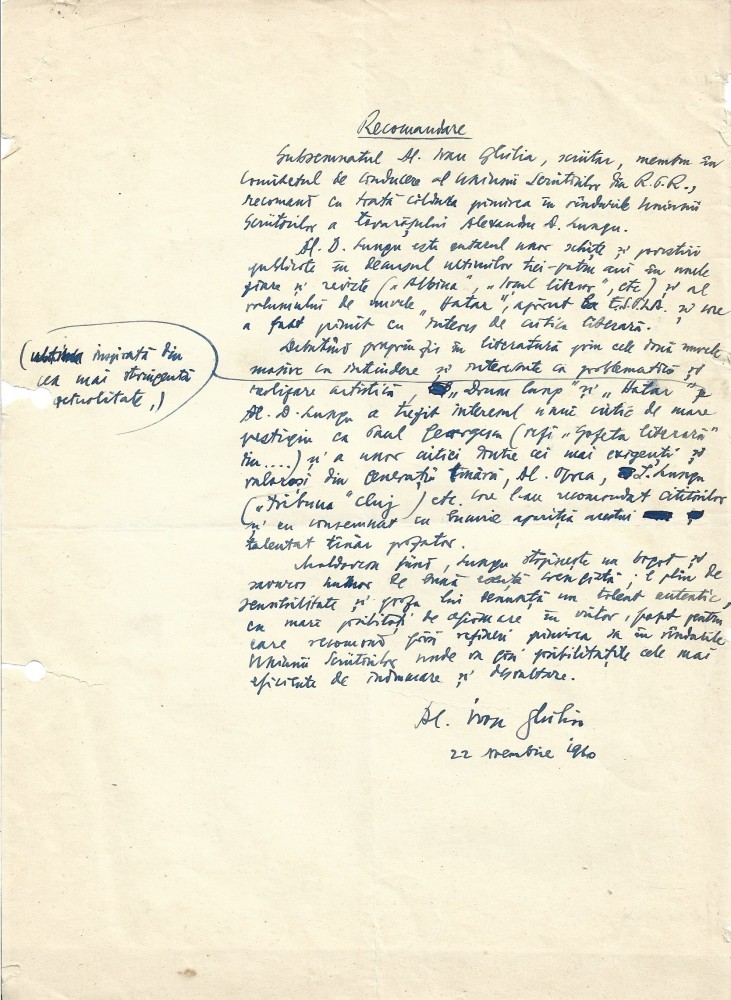 Recomandare
Subsemnatul Al. Ivan Ghilia, scriitor, membru în
Comitetul de conducere al Uniunii Scriitorilor din R.P.R.,
recomand cu toată căldura primirea în rândurile Uniunii
Scriitorilor a tovarășului Alexandru D. Lungu.
Al. D. Lungu este autorul unor schițe și povestiri
publicate în decursul ultimilor trei-patru ani în unele
ziare și reviste („Albina”, „Iașul literar”, etc) și al
volumului de nuvele „Hatar”, apărut la E.S.P.L.A. și care
a fost primit cu interes de critica literară.
Debutînd propriu zis în literatură prin cele două nuvele
masive ca întindere și interesante ca problematică și
(inspirată din
cea mai stringentă
actualitate,)
realizare artistică, „Drum lung” și „Hatar”
Al. D. Lungu a trezit interesul unui critic de mare
prestigiu ca Paul Georgescu (vezi „Gazeta literară”
din....) și a unor critici dintre cei mai exigenți și
valoroși din generația tânără, Al. Oprea, I. Lungu
(„Tribuna” Cluj) etc. care l-au recomandat cititorilor
și eu consemnez cu bucurie apariția acestui
talentat tînăr prozator.
Moldovean fiind, Lungu stăpînește un bogat și
savuros humor de bună esență crengistă; e plin de
sensibilitate și proza lui denunță un talent autentic,
cu mari posibilități de afirmare în viitor, fapt pentru
care recomand fără rețineri primirea sa în rîndurile
Uniunii Scriitorilor unde va găsi posibilitățile cele mai
eficiente de îndrumare și dezvoltare.
Al. Ivan Ghilia
22 noembrie 1960